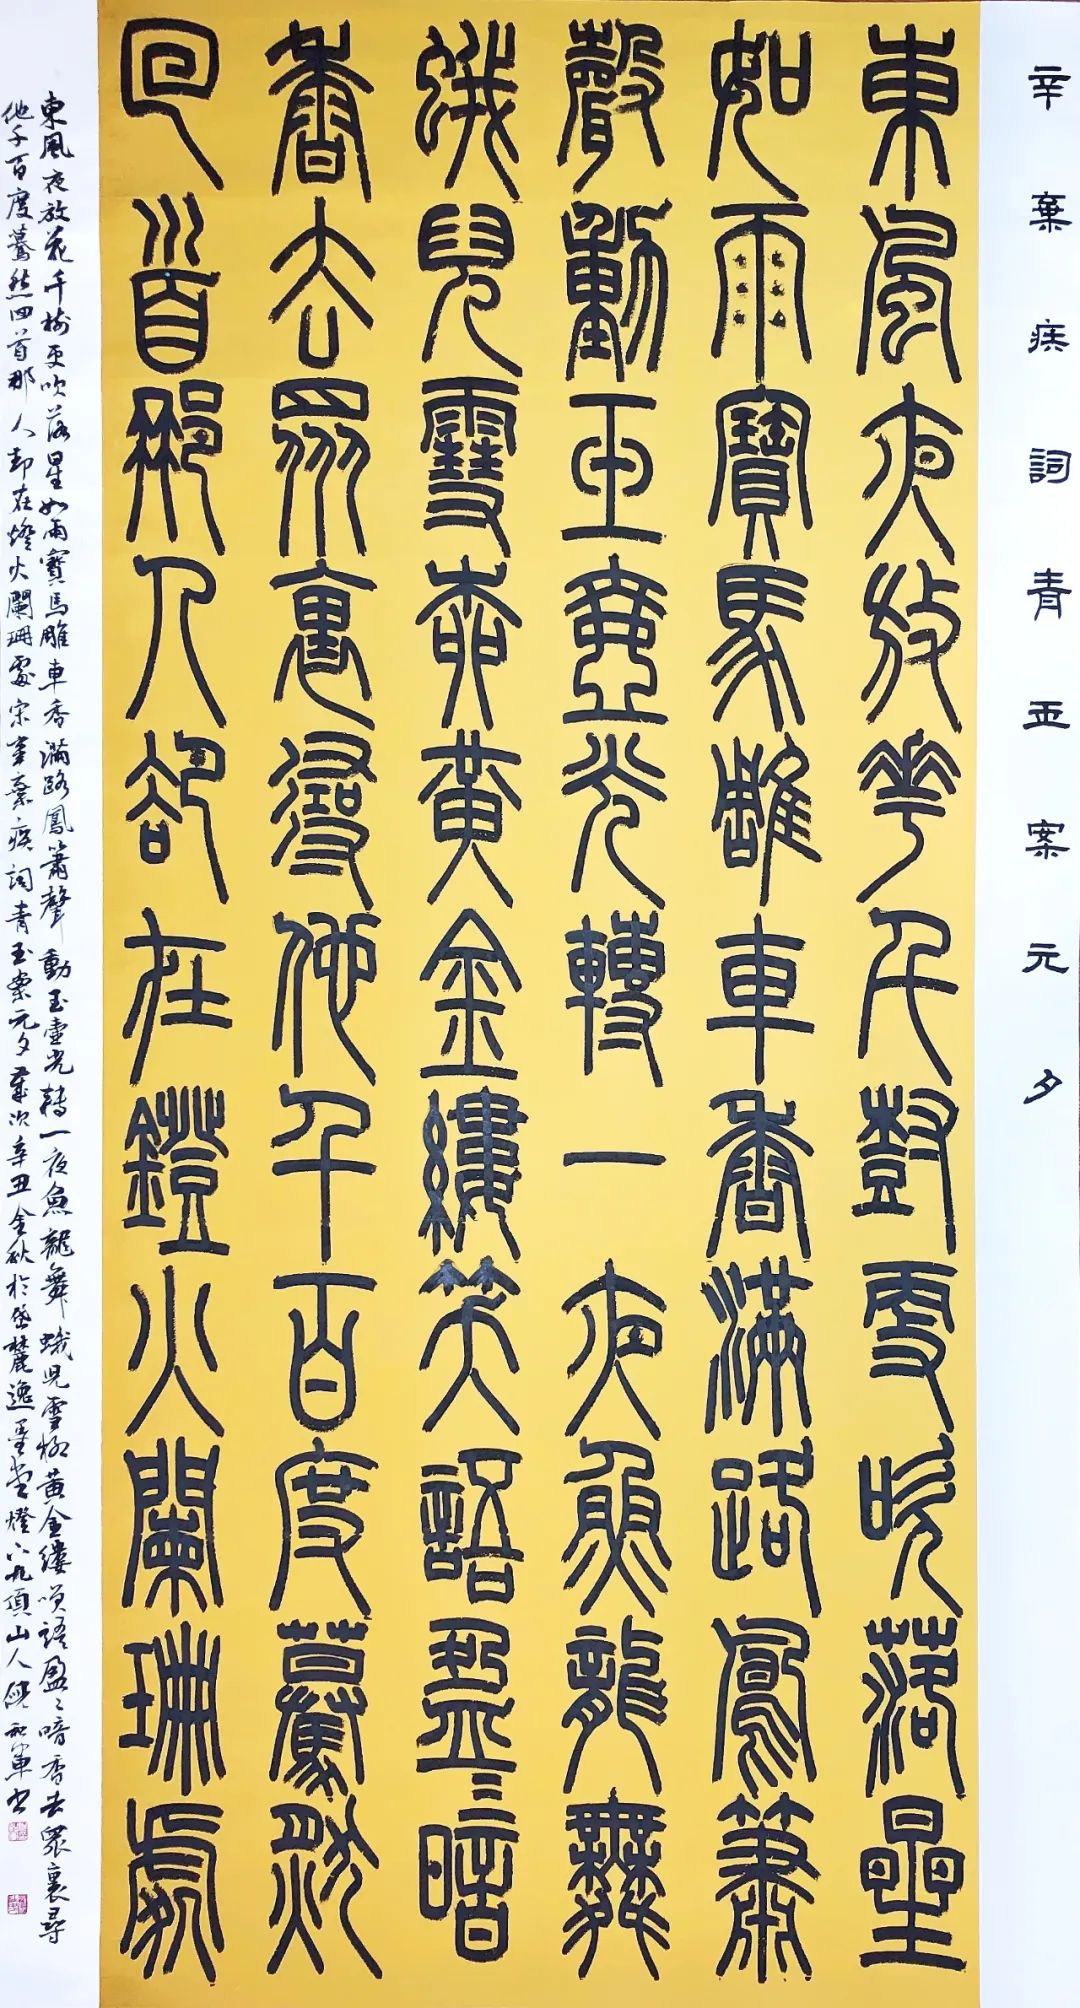 辛棄疾詞青玉案元夕
東風夜放華千尌更吹落星
如雨寶馬雕車香滿路鳳簫
聲動玉壺光轉一夜魚龍舞
蛾兒雪柳黃金縷笑語盈〻暗
香去眾裏尋他千百度驀然
回首那人卻在鐙火闌珊處
東風夜放花千樹更吹落星如雨寶馬雕車香滿路鳳簫聲動玉壺光轉一夜魚龍舞蛾兒雪柳黃金縷笑語盈〻暗香去眾裏尋
他千百度驀然回首那人卻在燈火闌珊處宋辛棄疾詞青玉案元夕歲次辛丑金秋於岱麓逸墨堂燈下九頂山人軍書